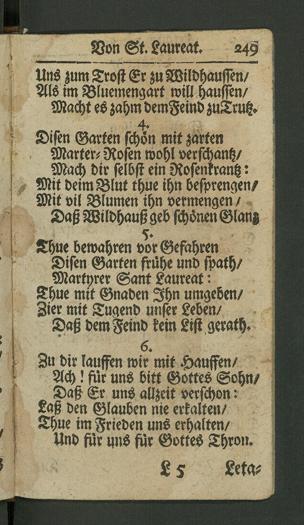 Von St. Laureat. 249
Uns zum Trost Er zu Wildhaussen/
Als im Bluemengart will haussen/
Macht es zahm dem Feind zu Trutz.
4.
Disen Garten schön mit zarten
Marter-Rosen wohl verschantz/
Mach dir selbst ein Rosenkrantz:
Mit deim Blut thue ihn besprengen/
Mit vil Blumen ihn vermengen/
Daß Wildhauß geb schönen Glantz
5.
Thue bewahren vor Gefahren
Disen Garten frühe und spath/
Martyrer Sant Laureat:
Thue mit Gnaden Ihn umgeben/
Zier mit Tugend unser Leben/
Daß dem Feind kein List gerath.
6.
Zu dir lauffen wir mit Hauffen/
Ach! für uns bitt Gottes Sohn/
Daß Er uns allzeit verschon:
Laß den Glauben nie erkalten/
Thue im Frieden uns erhalten/
Und für uns für Gottes Thron.
L 5 Leta-